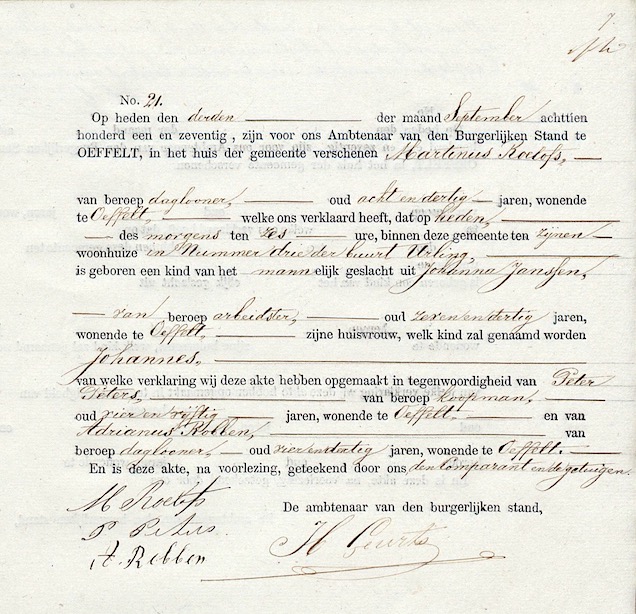 7.
No. 21.
Op heden den derden der maand September achttien
honderd een en zeventig, zijn voor ons Ambtenaar van den Burgerlijken Stand te
OEFFELT, in het huis der gemeente verschenen Martinus Roelofs,
van beroep daglooner, oud acht en dertig jaren, wonende
te Oeffelt, welke ons verklaard heeft, dat op heden,
des morgens ten zes ure, binnen deze gemeente ten zijnen
woonhuize in Nummer drie der buurt Urling,
is geboren een kind van het mannelijk geslacht uit Johanna Janssen,
van beroep arbeidster, oud zeven en dertig jaren,
wonende te Oeffelt, zijne huisvrouw, welk kind zal genaamd worden
Johannes,
van welke verklaring wij deze akte hebben opgemaakt in tegenwoordigheid van Peter
Peters, van beroep koopman,
oud vier en vijftig jaren, wonende te Oeffelt en van
Adrianus Robben, van
beroep daglooner, oud vier en dertig jaren, wonende te Oeffelt.
En is deze akte, na voorlezing, geteekend door ons, den Comparant en de getuigen.
M Roelofs
De ambtenaar van den burgerlijken stand,
P Peters.
H Geurts
A. Robben